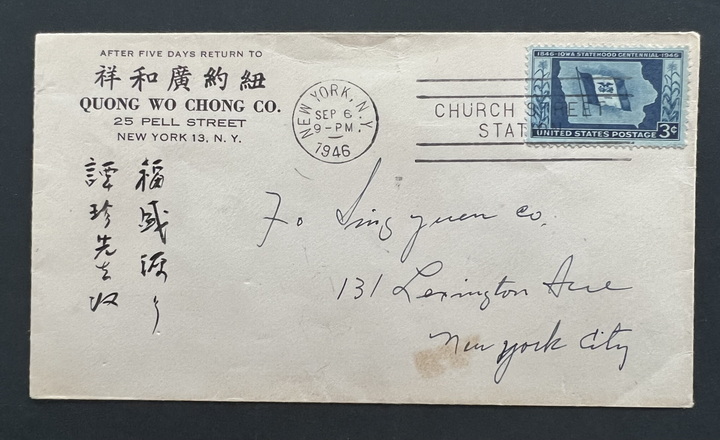 AFTER FIVE DAYS RETURN TO
祥和廣約紐
QUONG WO CHONG CO.
25 PELL STREET
NEW YORK 13, N. Y.
NEW YORK, N.Y.
SEP 6
9-PM
1946
CHURCH STREET
STAT
1846-IOWA STATEHOOD CENTENNIAL-1946
UNITED STATES POSTAGE 3¢
福盛源
譚珍先生收
Fo Sing yuen Co.
131 Lexington Ave
New York City